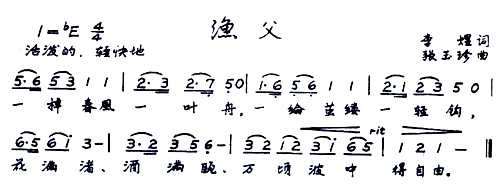 渔父
1=♭E 4/4
活泼的，轻快地
李煜 词
张玉珍 曲
5·6 5 3 1 1 | 2·3 2·7 5 0 | 1·6 5 6 1 1 | 2·1 2 3 5 0 |
一棹春風一叶舟，一纶茧缕一轻钩，
6·5 6 i 3 - | 3·2 3 5 6 - | 3 2 1 2 3 i 6 5 | 1 2 1 - ‖
rit
花满渚、酒满瓯，万顷波中得自由。